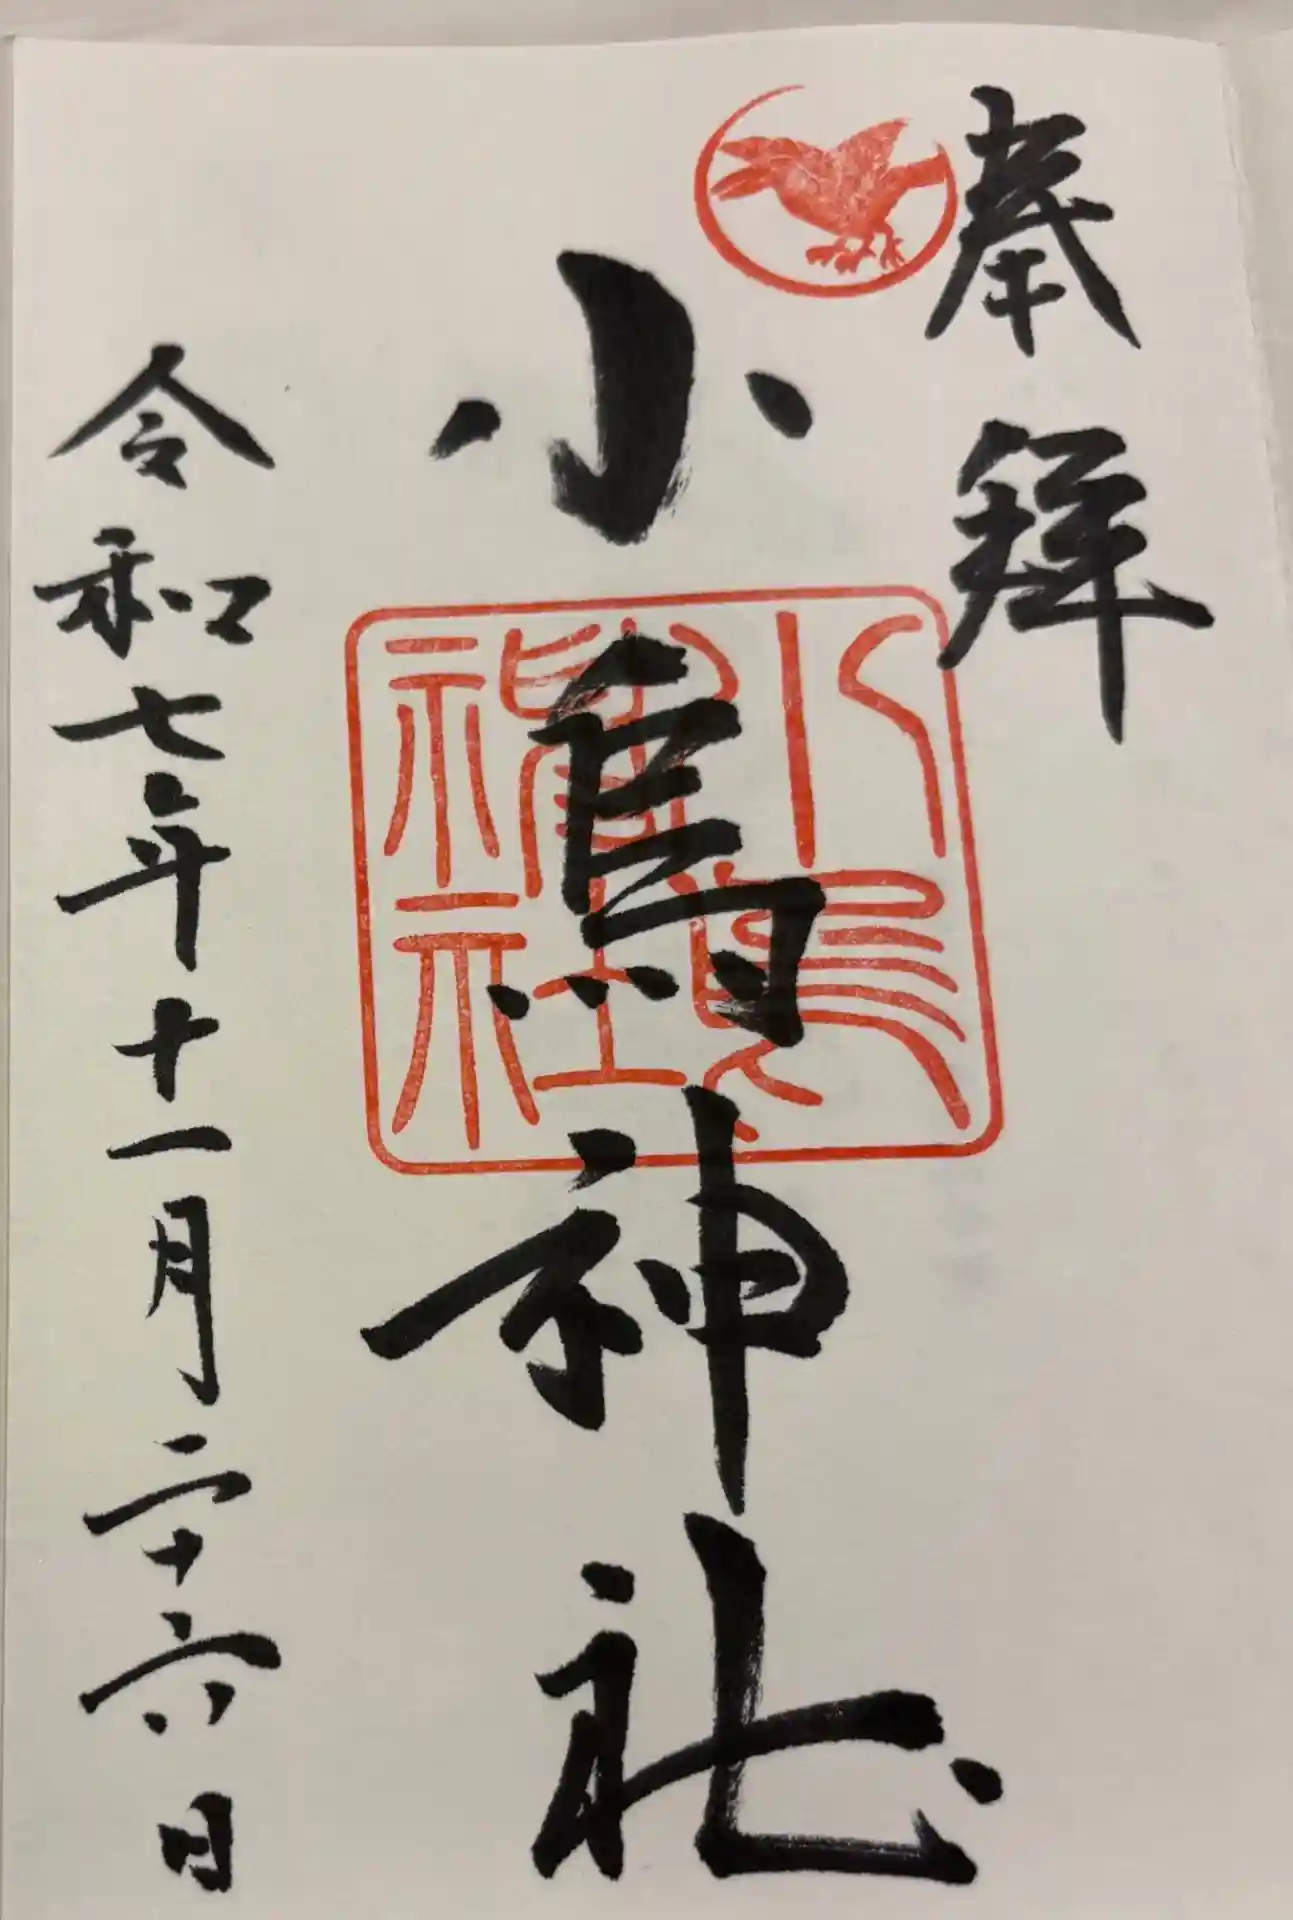 奉拝
小烏神社
令和七年十一月二十六日